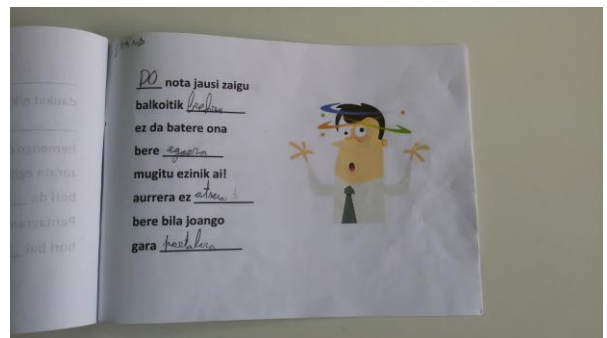 DO nota jausi zaigu
balkoitik
ez da batere ona
bere egoera
mugitu ezinik ai!
aurrera ez
bere bila joango
gara portalera